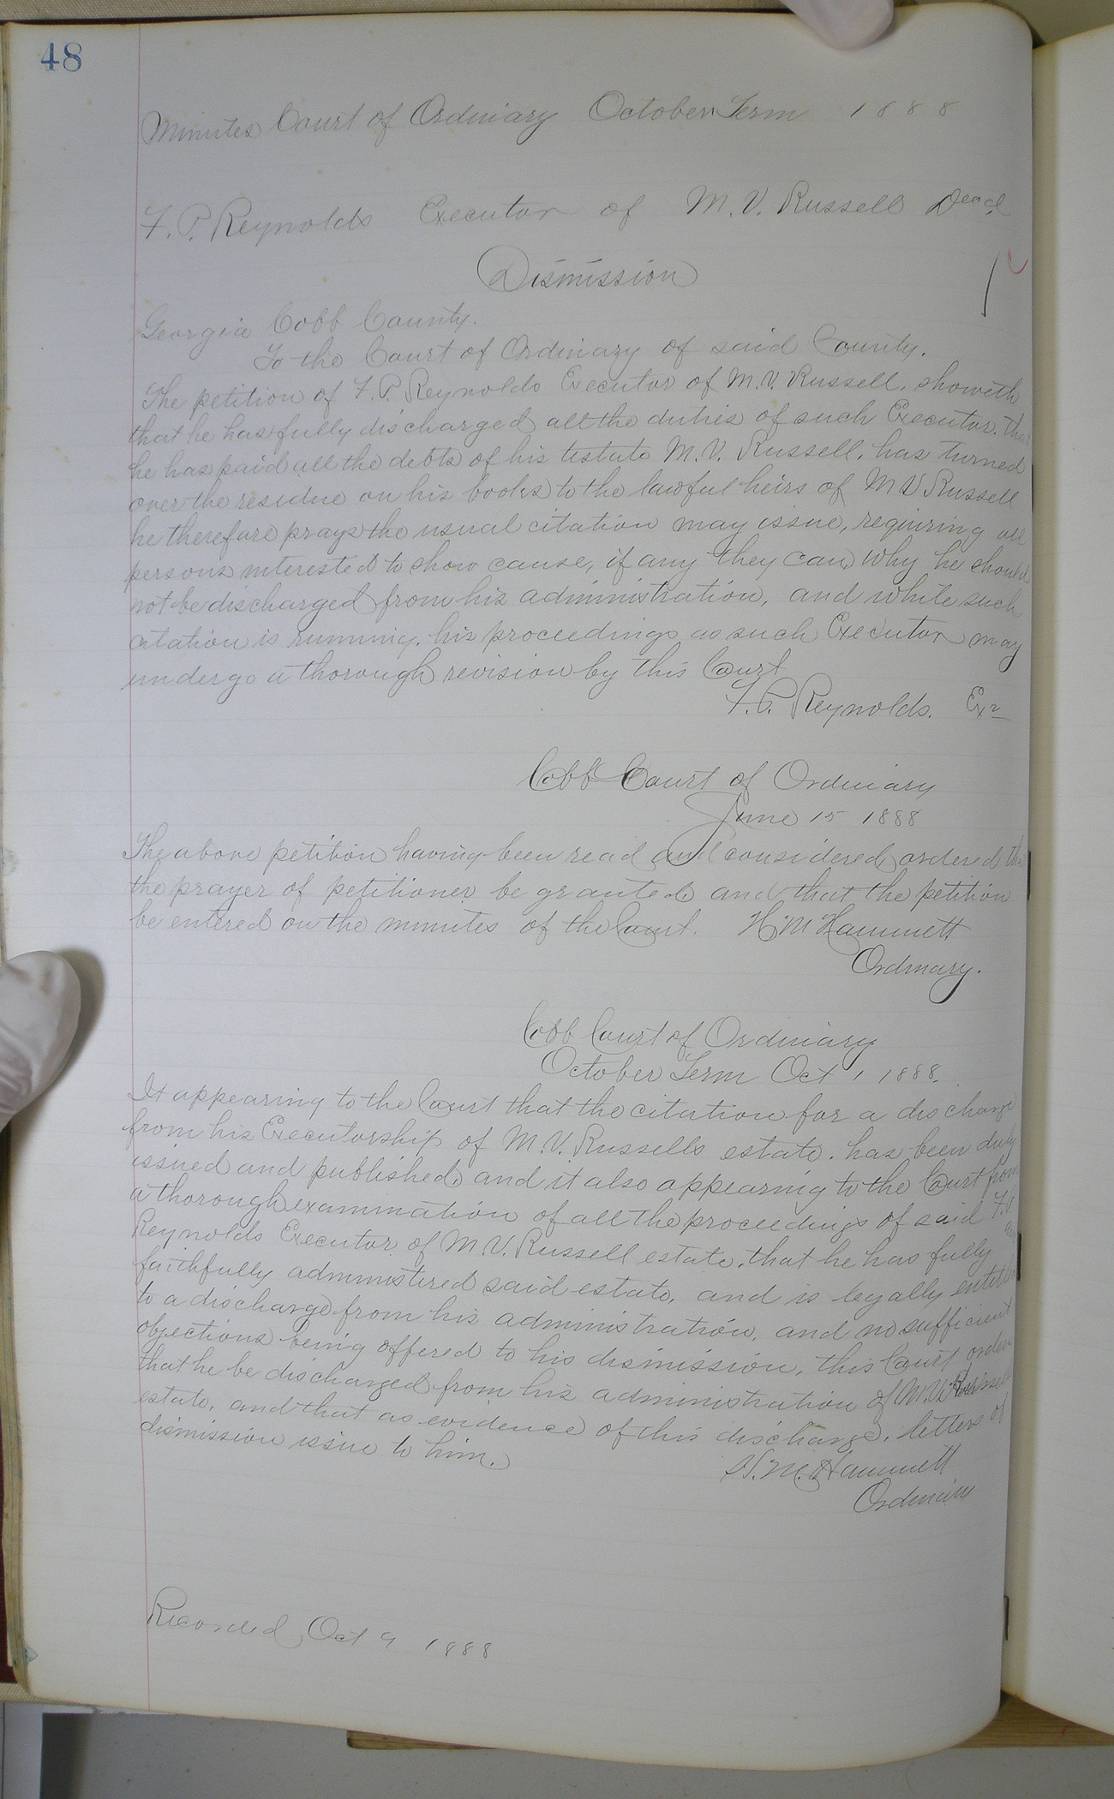 48
Minutes Court of Ordinary October Term 1888
F. P. Reynolds Executor of M. V. Russell Decd
Dismission
Georgia Cobb County.
To the Court of Ordinary of said County.
The petition of F. P. Reynolds Executor of M. V. Russell. showeth
that he has fully discharged all the duties of such Executor. that
he has paid all the debts of his testate M. V. Russell. has turned
over the residue on his books to the lawful heirs of M V Russell
he therefore prays the usual citation may issue, requiring all
persons interested to show cause, if any they can, why he should
not be discharged from his administration, and while such
citation is running. his proceedings as such Executor may
undergo a thorough revision by this Court
F. P. Reynolds. Exr
Cobb Court of Ordinary
June 15 1888
The above petition having been read and considered, ordered that
the prayer of petitioner be granted and that the petition
be entered on the minutes of the Court. H M Hammett
Ordinary.
Cobb Court of Ordinary
October Term Oct 1 1888.
It appearing to the Court that the citation for a discharge
from his Executorship of M. V. Russells estate. has been duly
issued and published, and it also appearing to the Court from
a thorough examination of all the proceedings of said F. P.
Reynolds Executor of M. V. Russell estate, that he has fully
faithfully administered said estate, and is legally entitled
to a discharge from his administration, and no sufficient
objections being offered to his dismission, this Court orders
that he be discharged from his administration of M. V.
estate, and that as evidence of this discharge, letters of
dismission issue to him.
H. M. Hammett
Ordinary
Recorded Oct 9 1888